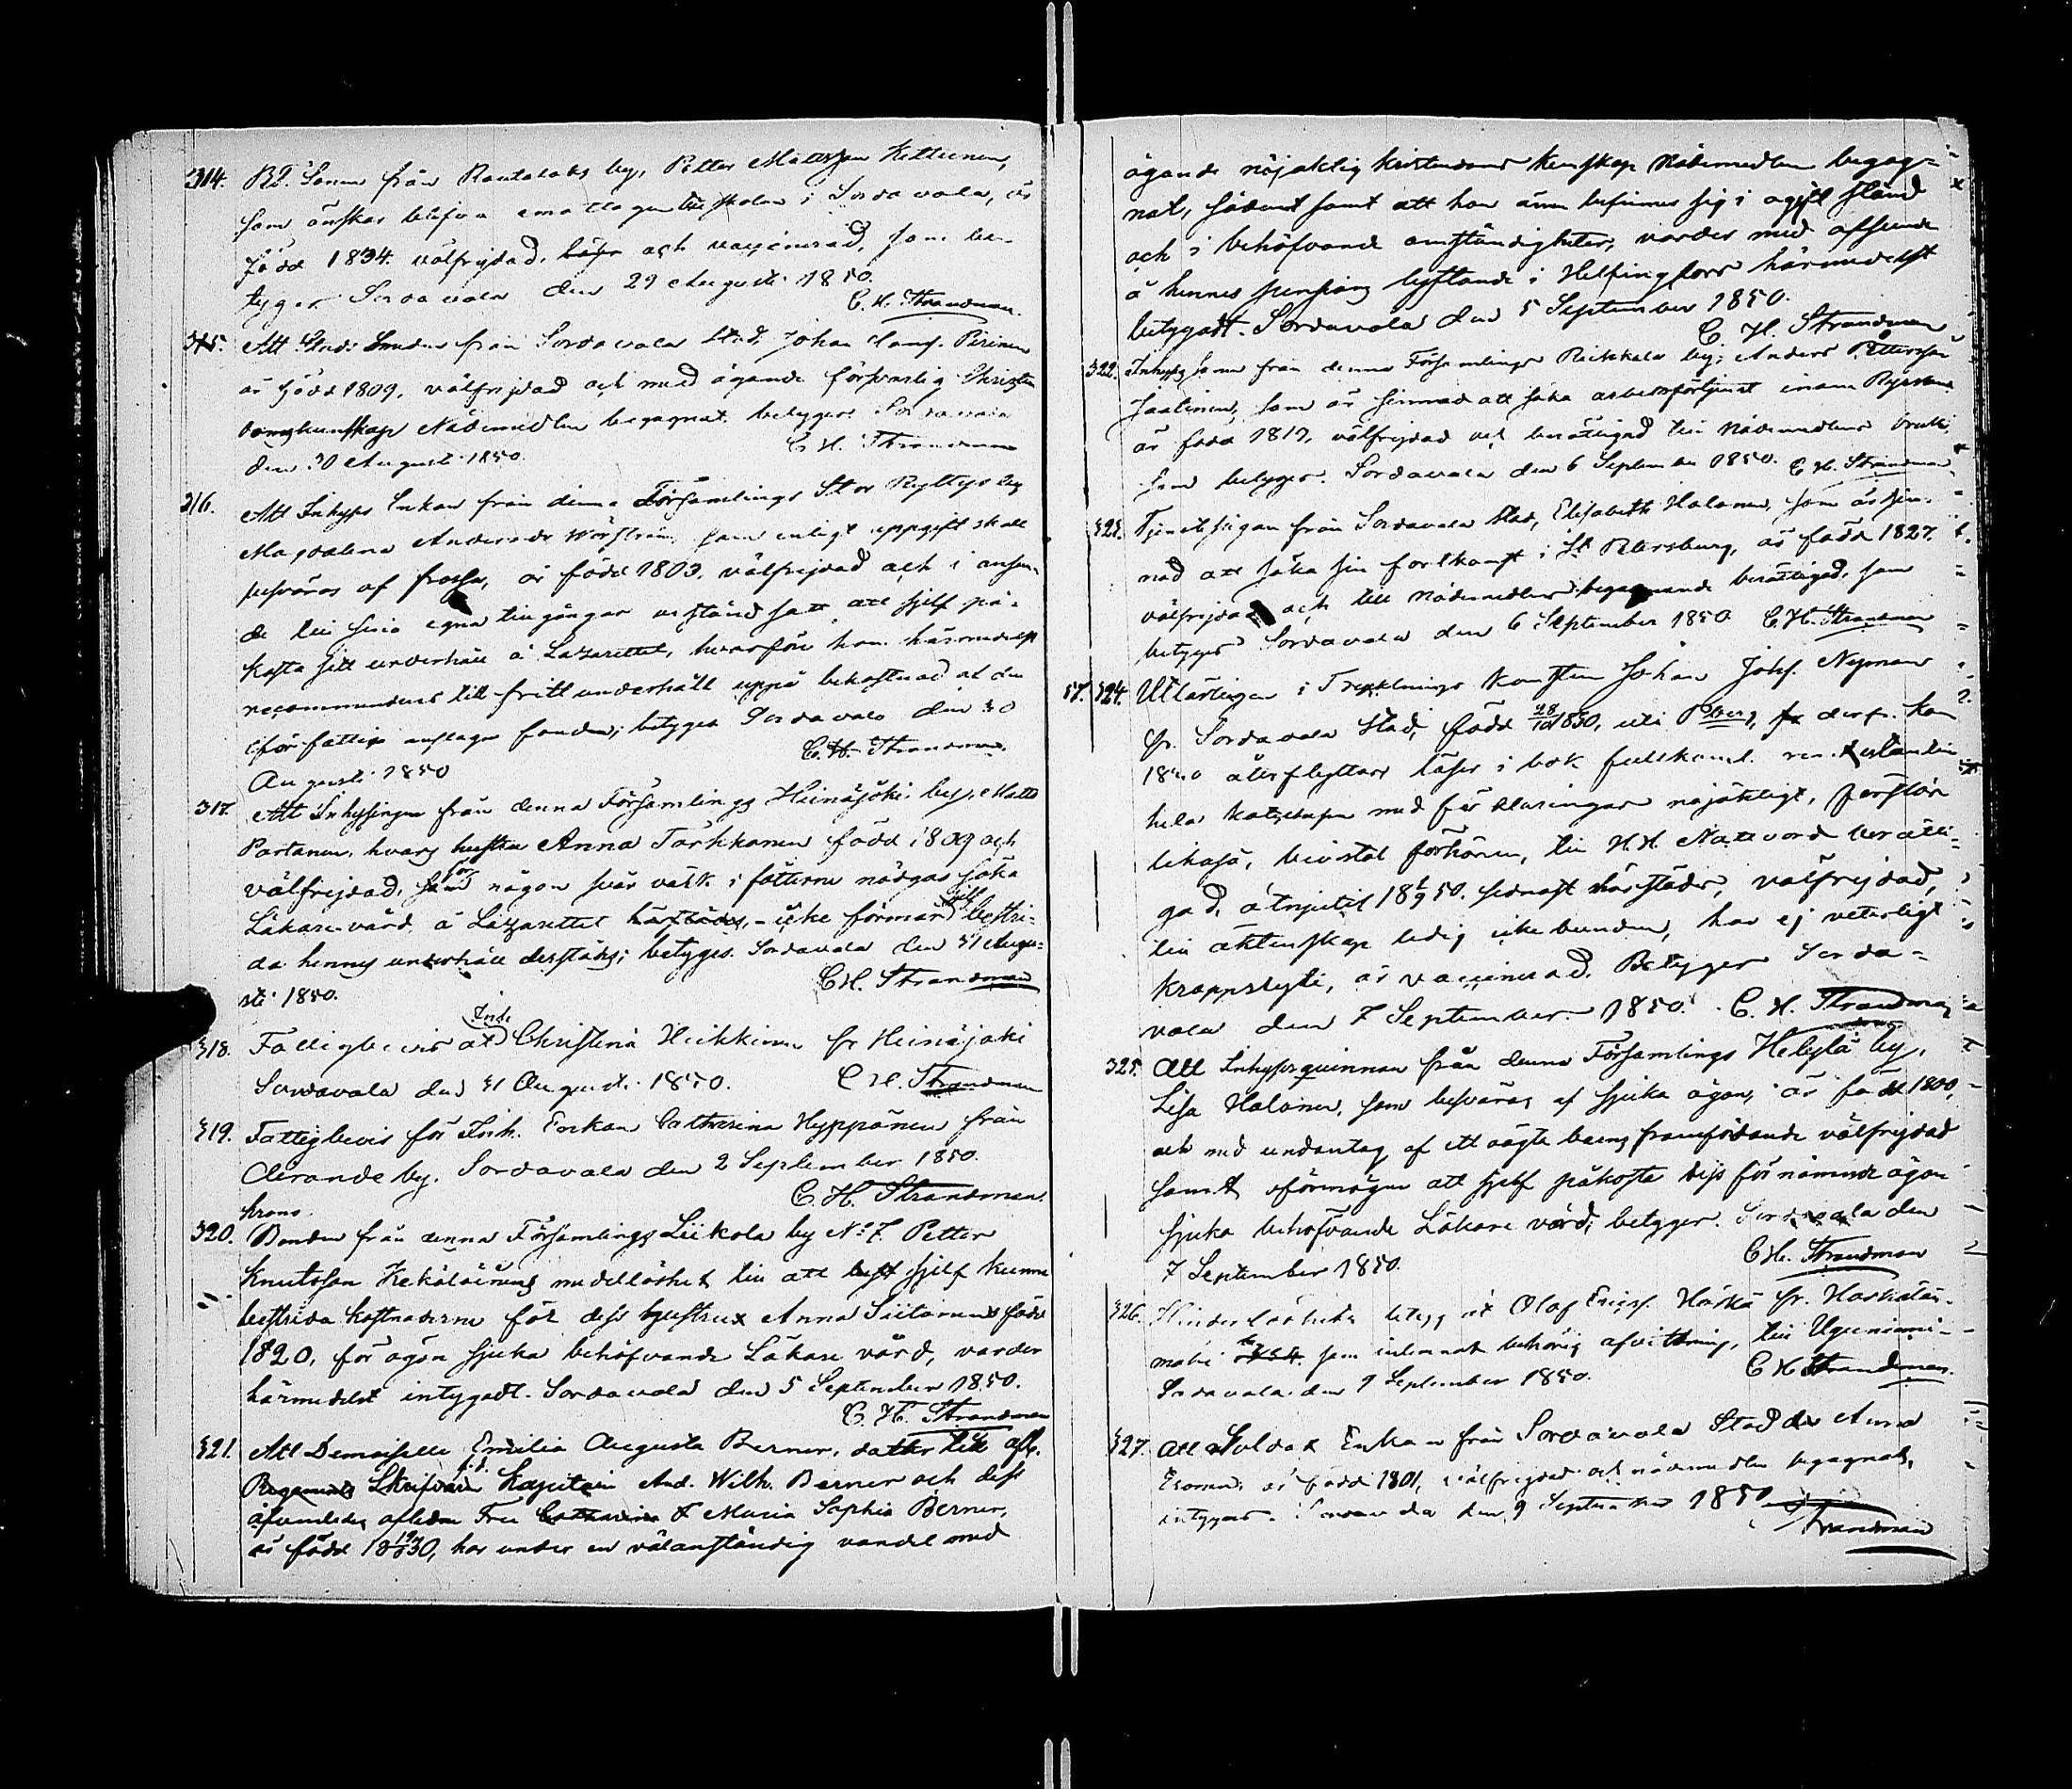 314. Bd. Sonen från Rautalaks by, Petter Mattsson Kettunen,
som önskar blifva emottagen till skolan i Sordavala, är
född 1834. välfrejdad, och vaccinerad, som be-
tygas Sordavala den 29 Augusti 1850.
C. H. Strandman.
315. Att från Sordavala Stad, Johan Pirinen
är född 1809, välfrejdad och med ägande försvarlig Christen
domskunskap Nådemedlen begagnat, betygas. Sordavala
den 30 Augusti 1850. C. H. Strandman
316. Att Inhyses Enkan från denna Församlings Stor Ryttys by
Magdalena Andersdr som enligt uppgift skall
besväras af frossa, är född 1803, välfrejdad och i anseen-
de till sina egna tillgångar urståndsatt att sjelf på-
kosta sitt underhåll å Lazarettet, hvarföre hon härmedelst
recommenderas till fritt underhåll uppå bekostnad af den
för fattige anslagne fonden; betygas Sordavala den 30
Augusti 1850 C. H. Strandman.
317. Att Inhysingen från denna Församlings Heinäjoki by, Matts
Partanen, hvars hustru Anna Tarkkanen född 1809 och
välfrejdad, som för någon svår värk i fötterna nödgas söka
Läkarevård å Lazarettet härstädes, - icke förmår sjelf bestri-
da hennes underhåll derstädes; betygas. Sordavala den 31 Augu-
sti 1850. C. H. Strandman
318. Fattigbevis åt Inh. Christina Heikkinen fr Heinäjoki
Sordavala den 31 Augusti 1850. C. H. Strandman
319. Fattigbevis för Inh. Enkan Catharina Hyppönen från
by. Sordavala den 2 September 1850.
C. H. Strandman.
krono
320. Bonden från denna Församlings Liikola by No 7. Petter
Knutsson Kekäläinens medellöshet till att sjelf kunna
bestrida kostnaderne för dess hustrus Anna Siitonens född
1820, för ögon sjuka behöfvande Läkare vård, varder
härmedelst intygadt. Sordavala den 5 September 1850.
C. H. Strandman
321. Att Demoiselle Emilia Augusta Berner, dotter till afl.
Regements Skrifvare f.d. Kapiten And. Wilh. Berner och dess
äfvenledes aflidna Fru Catharina f Maria Sophia Berner,
är född 18 30, har under en välanständig vandel med
ägande nöjaktig kristendoms kunskap Nådemedlen begag-
nat, samt att hon ännu befinnes sig i ogift stånd
och i behöfvande omständigheter, varder med afseende
å hennes pensions lyftande i Helsingfors härmedelst
betygadt. Sordavala den 5 September 1850.
C. H. Strandman
322. Inhyses Sonen från denna Församlings Riekkala by, Anders Pettersson
Jaatinen, som är sinnad att söka arbetsförtjenst inom Ryssland
är född 1817, välfrejdad och berättigad till Nådemedlens bruk,
som betygas. Sordavala den 6 September 1850. C. H. Strandman
323. Tjenstepigan från Sordavala Stad, Elisabeth Halonen, som är sin-
nad att söka sin fortkomst i St Petersburg, är född 1827.
välfrejdad och till Nådemedlens begagnande berättigad, som
betygas Sordavala den 6 September 1850 C. H. Strandman
57. 324. Utlärlingen i Konsten Johan Johs. Nyman
fr. Sordavala Stad, född 28/10 1830, uti Pburg, derfr. han
1840 återflyttare läser i bok fullkoml. ren utantill
hela katechesen med förklaringar nöjaktigt, förstår
likaså, bivistat förhören, till H. H. Nattvard berätti-
gad, åtnjutit 18 50. sednast härstädes, välfrejdad,
till äktenskap ledig icke bunden, har ej veterligt
kroppslyte, är vaccinerad. Betygas Sorda-
vala den 7 September 1850. C. H. Strandman
325. Att Inhyses quinnan från denna Församlings Helylä by,
Lisa Halonen, som besväras af sjuka ögon, är född 1800,
och med undantag af ett oägta barns framfödande välfrejdad
samt oförmögen att sjelf påkosta dess förnämnde ögon
sjuka behöfvande Läkare vård; betygas. Sordavala den
7 September 1850. C. H. Strandman
326. Hinderlöshets betyg åt Olof Ericss. Härkä fr.
mäki som inlemnat behörig afvittring, till Uguniemi -
Sordavala den 7 September 1850. C H Strandman.
327. Att Soldat Enkan från Sordavala Stad Anna
är född 1801, välfrejdad och nådemedlen begagnat,
intygas. Sordavala den 9 September 1850
Strandman